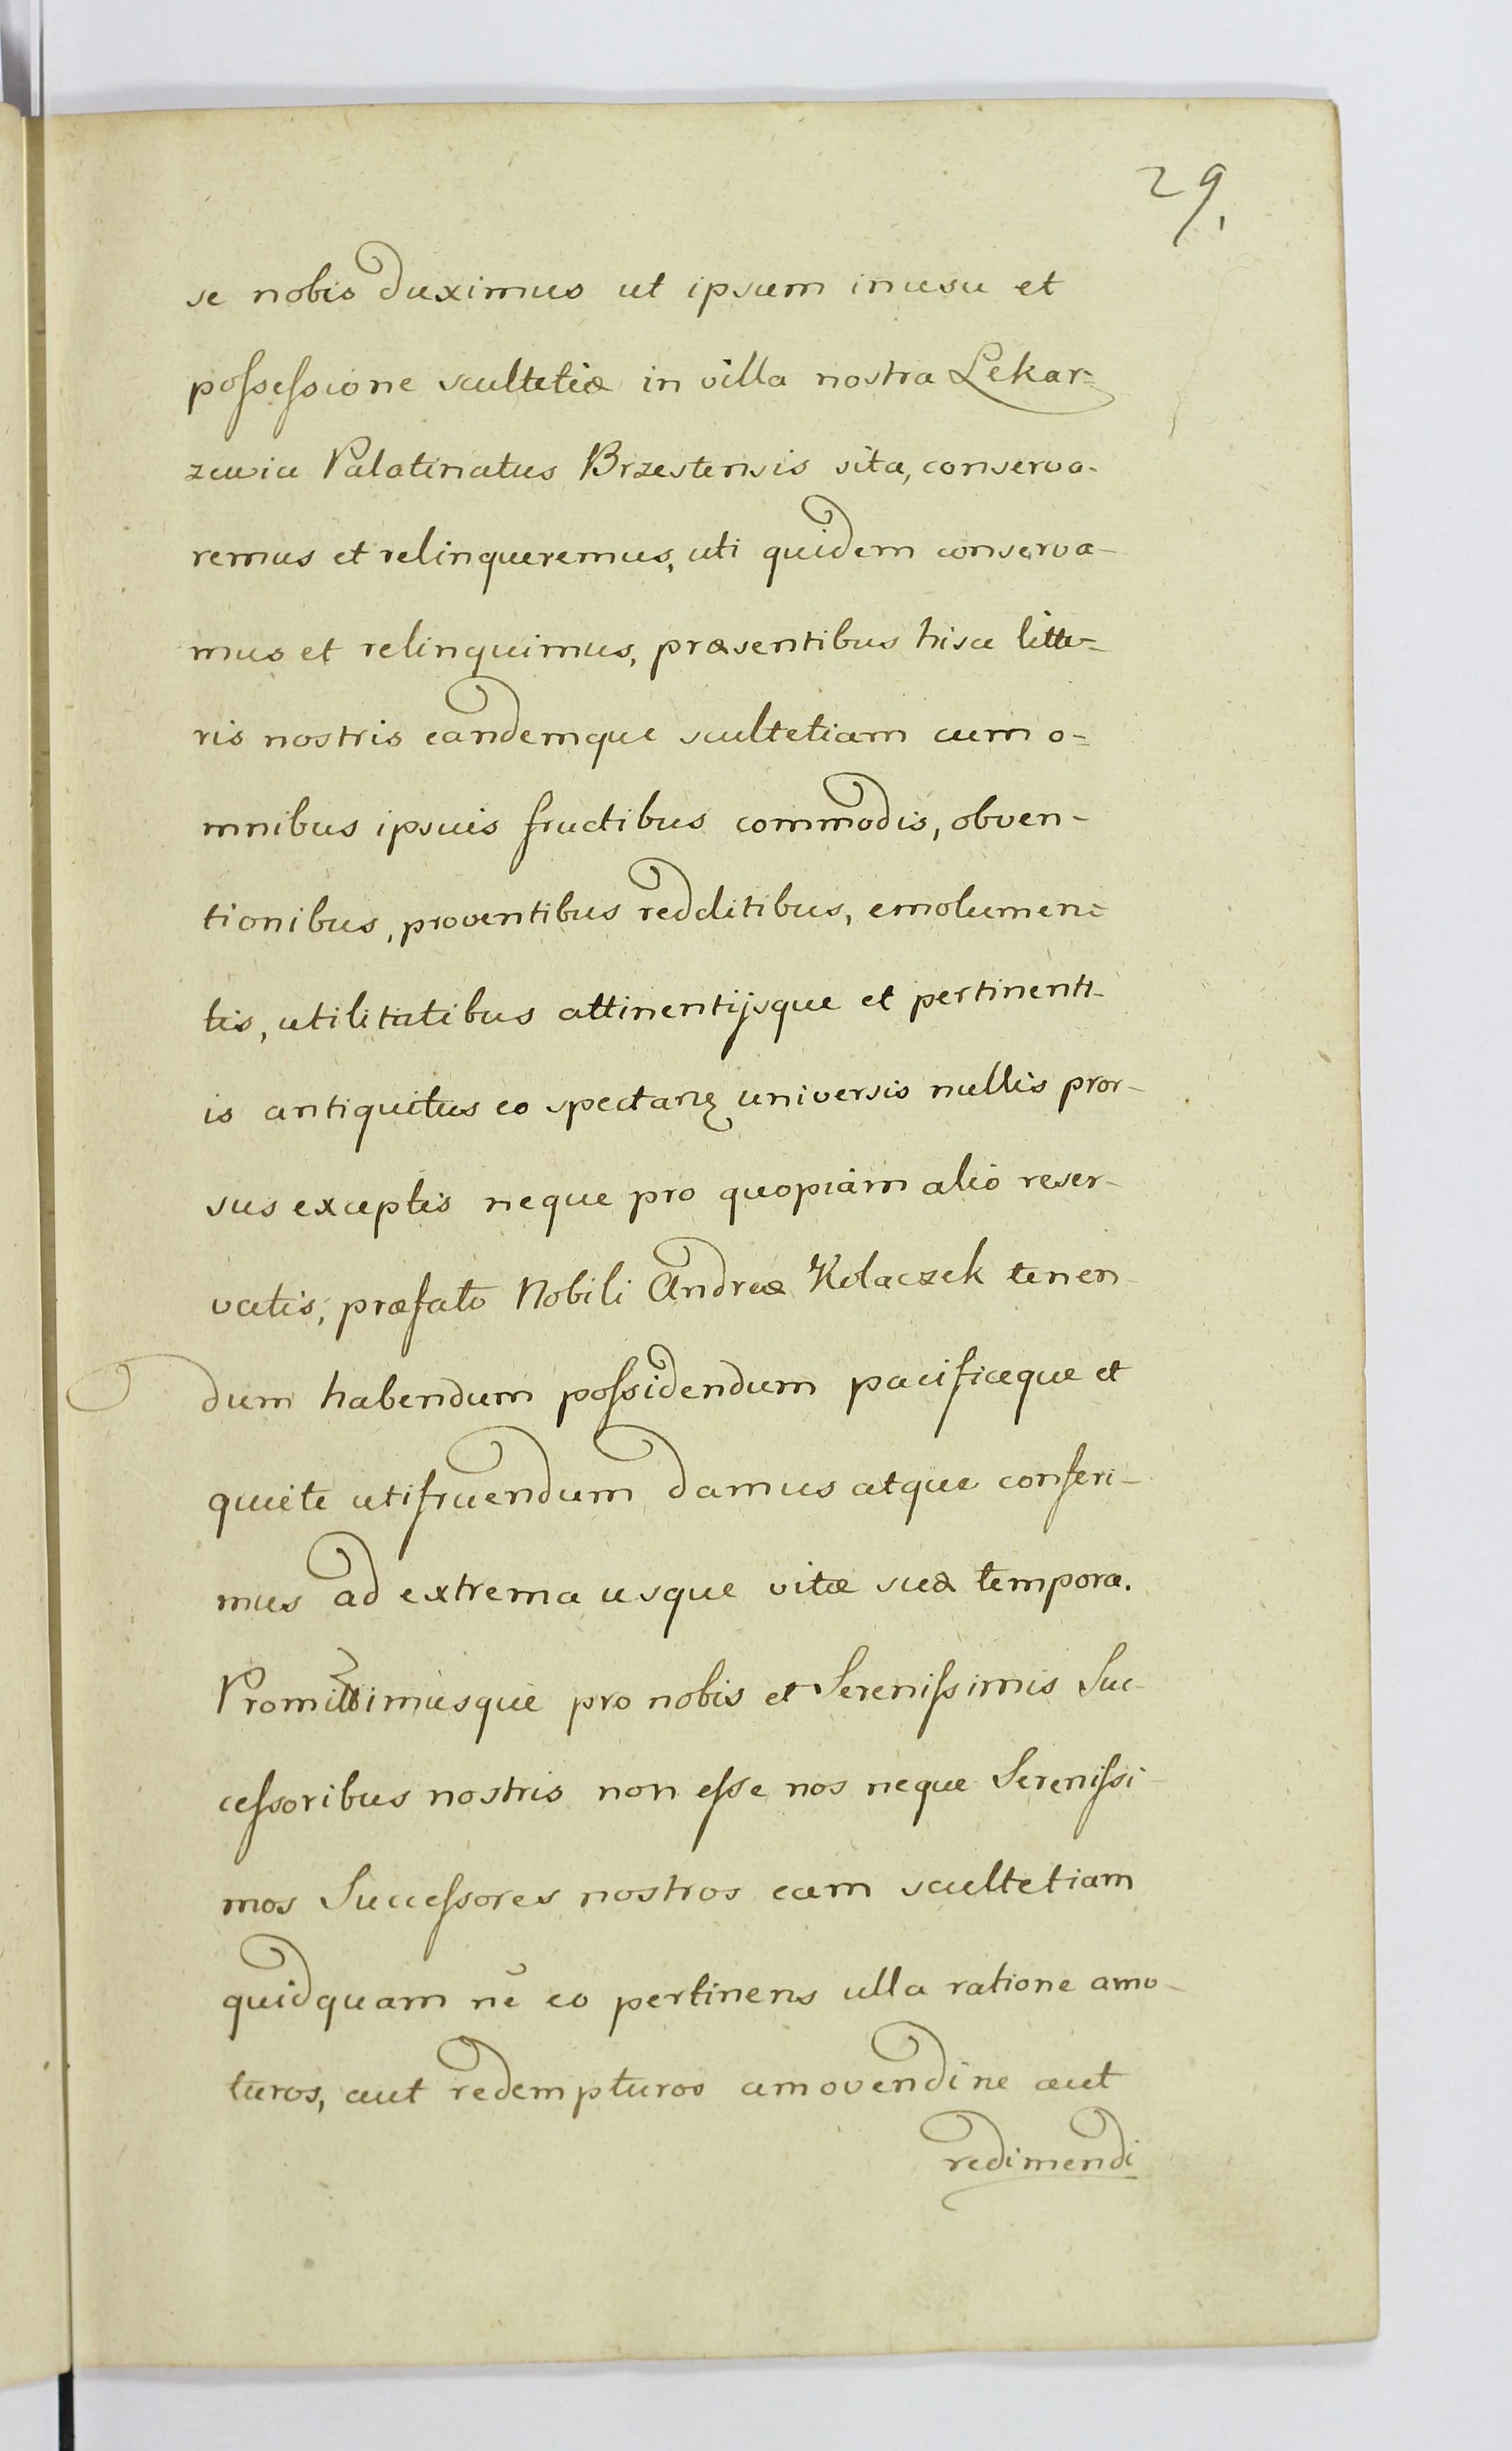 29.
se nobis duximus ut ipsum in usu et
possessione scultetiæ in villa nostra Lekar=
zewice Palatinatus Brzestensis sita, conserva-
remus et relinqueremus, uti quidem conserva-
mus et relinquimus, præsentibus hisce litte=
ris nostris eandemque scultetiam cum o=
mnibus ipsius fructibus commodis, obven-
tionibus, proventibus redditibus, emolumen=
tis, utilitatibus attinentijsque et pertinenti-
is antiquitus eo spectanꝫ universis nullis pror-
sus exceptis neque pro quopiam alio reser-
vatis, præfato Nobili Andreæ Kolaczek tenen-
dum habendum possidendum pacificeque et
quiete utifruendum damus atque conferi-
mus ad extrema usque vitæ suæ tempora.
Promittimusque pro nobis et Serenissimis Suc-
cessoribus nostris non esse nos neque Serenissi-
mos Successores nostros eam scultetiam
quidquam nē eo pertinens ulla ratione amo-
turos, aut redempturos amovendi ne aut
redimendi